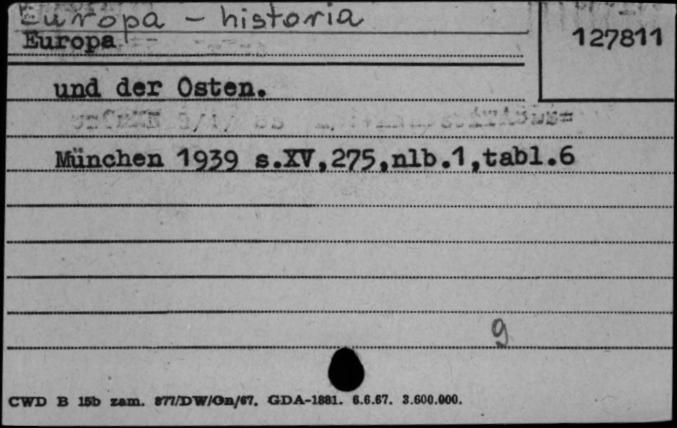 Europa - historia
Europa
127811
und der Osten.
München 1939 s.XV,275,nlb.1,tabl.6
9
CWD B 15b zam. 877/DW/Gn/67. GDA-1881. 6.6.67. 3.600.000.